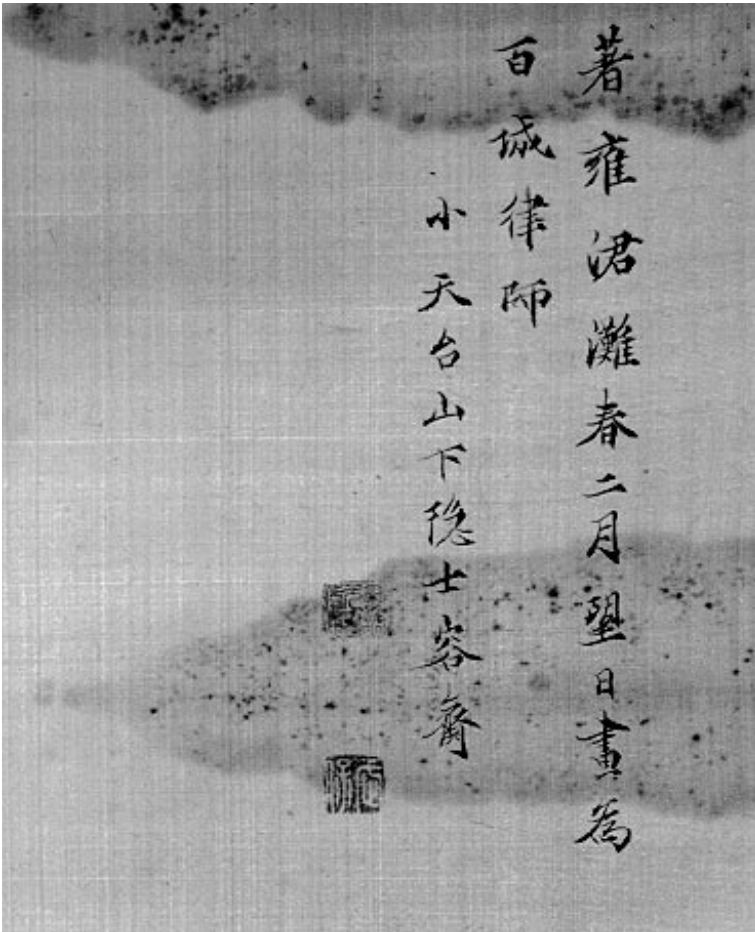 著雍涒灘春二月望日畫為
百城律師
小天台山下隱士容齋